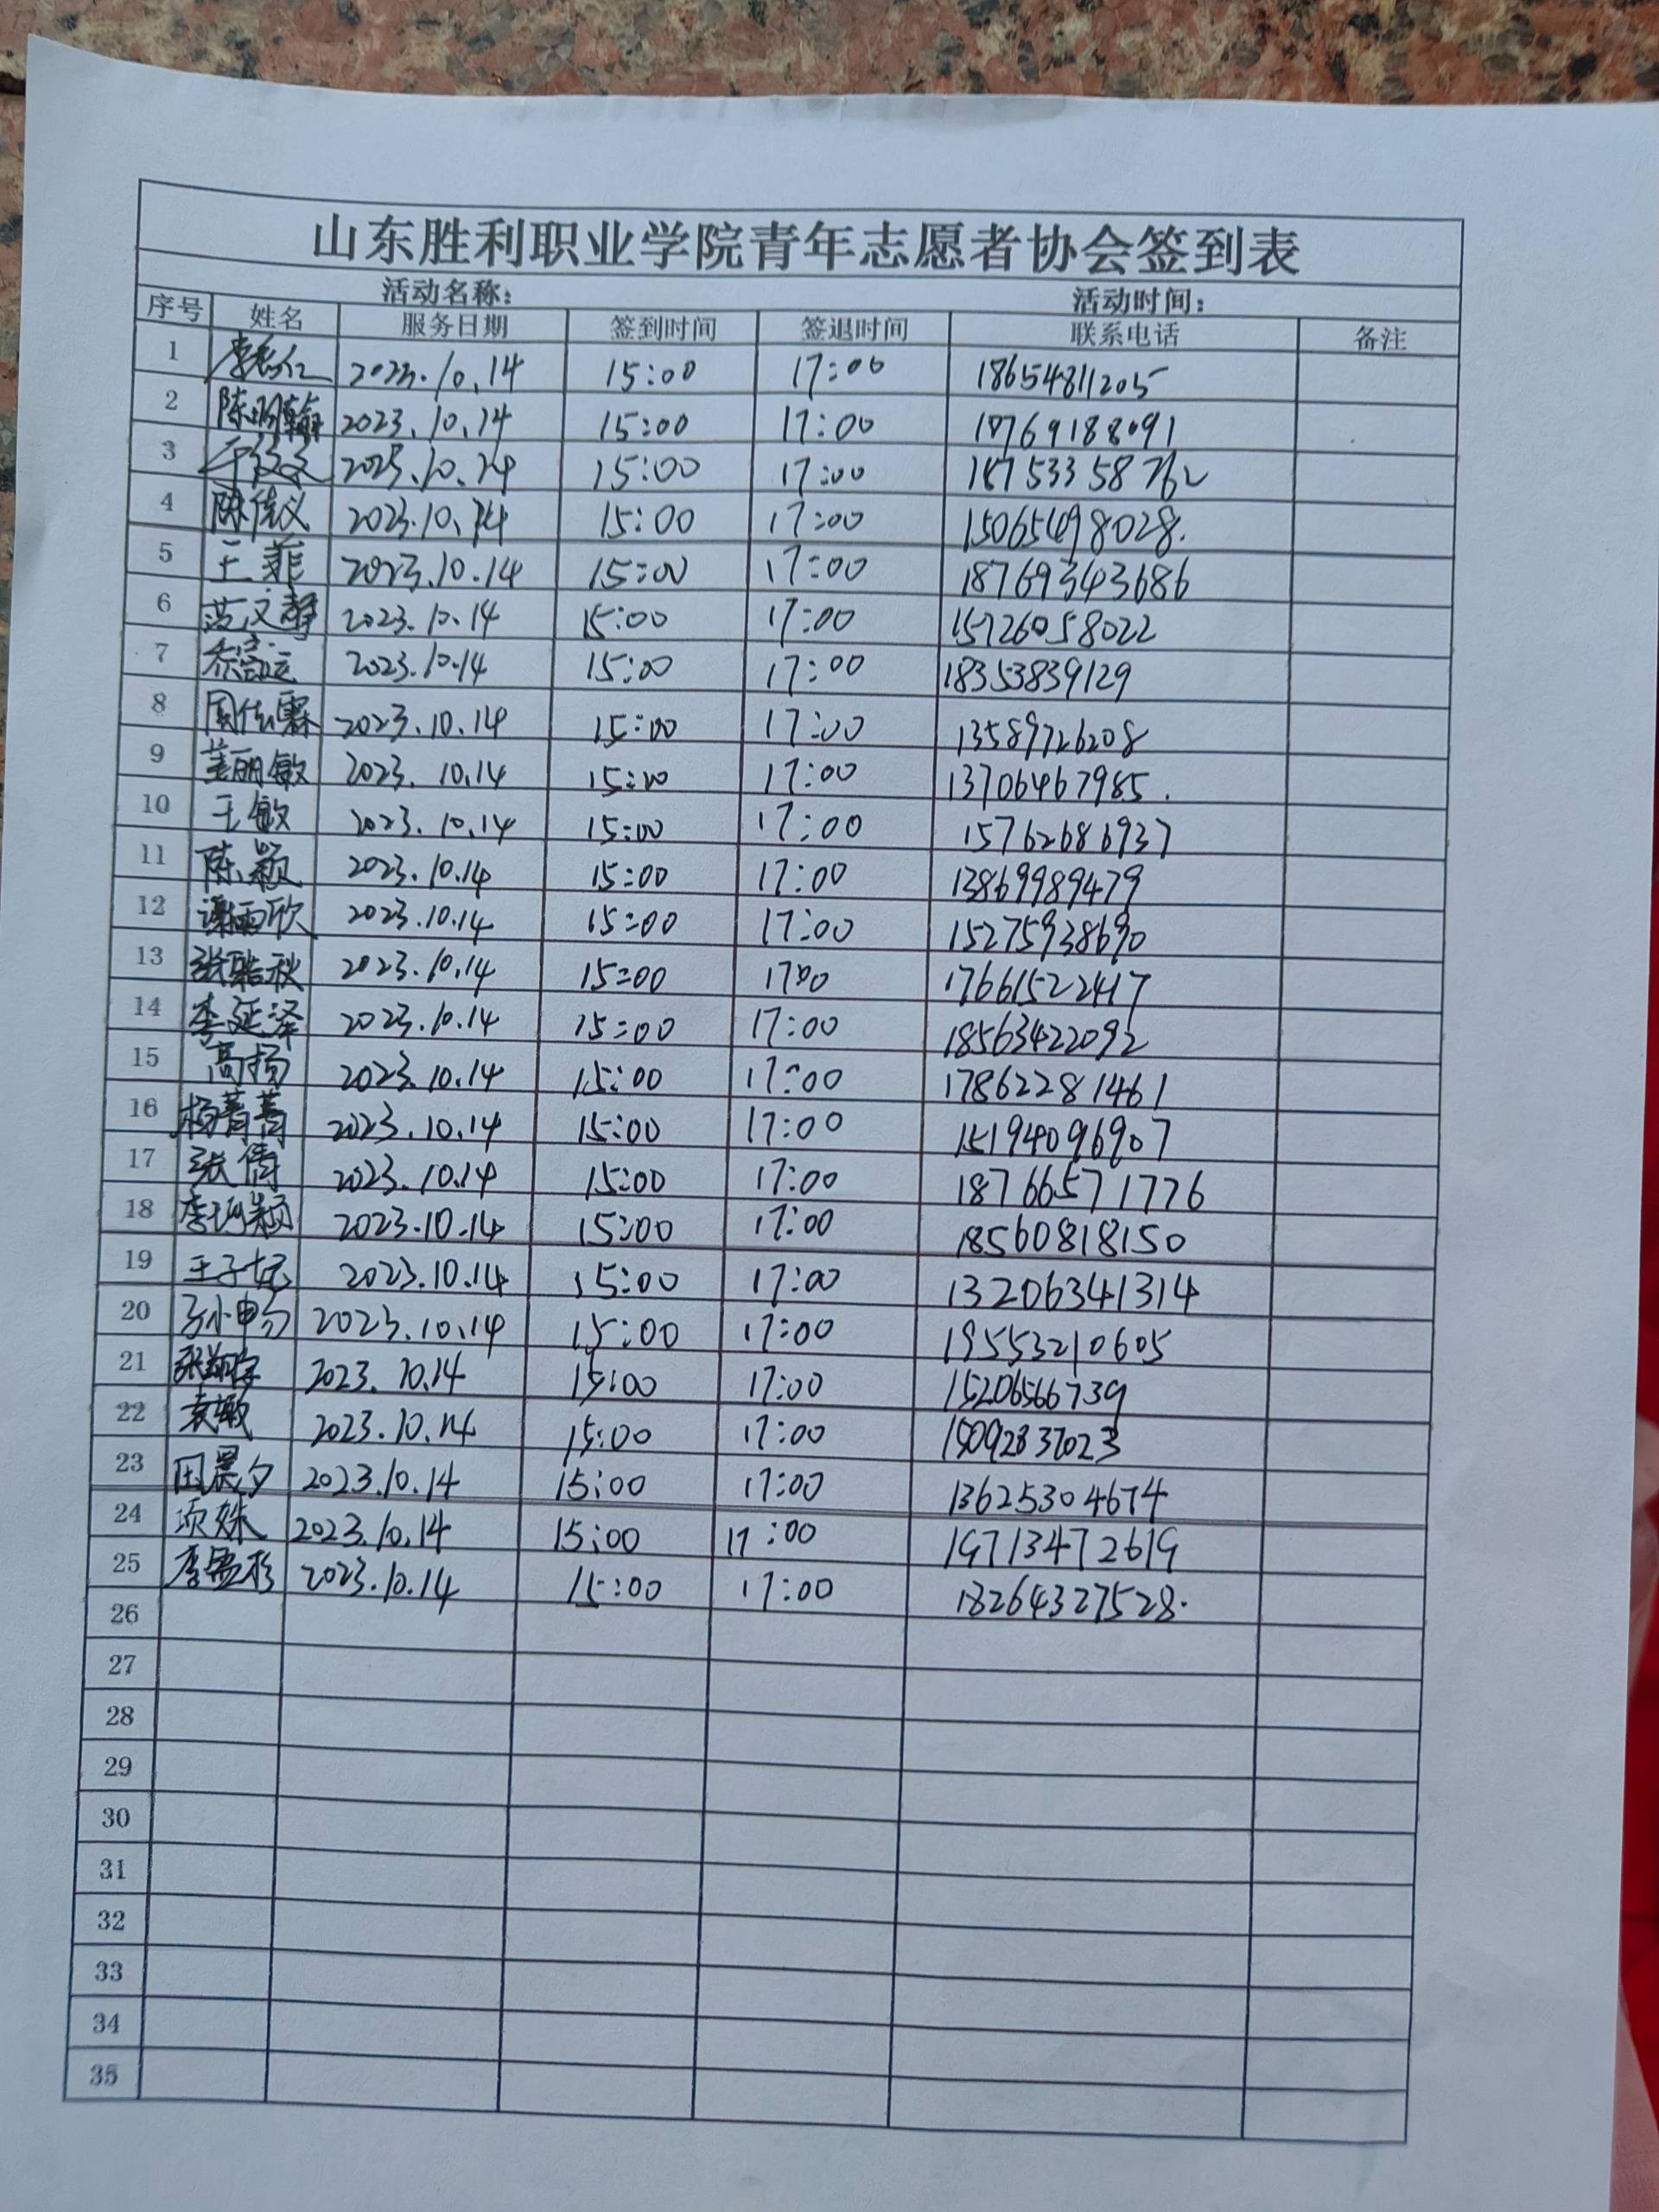 山东胜利职业学院青年志愿者协会签到表
活动名称： 活动时间：
序号 姓名 服务日期 签到时间 签退时间 联系电话 备注
1 2023.10.14 15:00 17:00 18654811205
2 陈明翰 2023.10.14 15:00 17:00 18769188091
3 2023.10.14 15:00 17:00 18753358762
4 陈佳义 2023.10.14 15:00 17:00 15065498028.
5 王菲 2023.10.14 15:00 17:00 18769343686
6 范文静 2023.10.14 15:00 17:00 15726058022
7 乔富运 2023.10.14 15:00 17:00 18353839129
8 周佳霖 2023.10.14 15:00 17:00 13589726208
9 姜丽敏 2023.10.14 15:00 17:00 13706467985.
10 王敏 2023.10.14 15:00 17:00 15762686937
11 陈颖 2023.10.14 15:00 17:00 13869989479
12 谭雨欣 2023.10.14 15:00 17:00 15275938690
13 张皓秋 2023.10.14 15:00 17:00 17661522417
14 李延泽 2023.10.14 15:00 17:00 18563422092
15 高扬 2023.10.14 15:00 17:00 17862281461
16 杨菁菁 2023.10.14 15:00 17:00 15194096907
17 张倩 2023.10.14 15:00 17:00 18766571776
18 2023.10.14 15:00 17:00 18560818150
19 王子妃 2023.10.14 15:00 17:00 13206341314
20 2023.10.14 15:00 17:00 19553210605
21 张翔宇 2023.10.14 15:00 17:00 15206566739
22 袁敏 2023.10.14 15:00 17:00 15092837023
23 田晨夕 2023.10.14 15:00 17:00 13625304674
24 项姝 2023.10.14 15:00 17:00 19713472619
25 李孟杉 2023.10.14 15:00 17:00 18264327528.
26
27
28
29
30
31
32
33
34
35